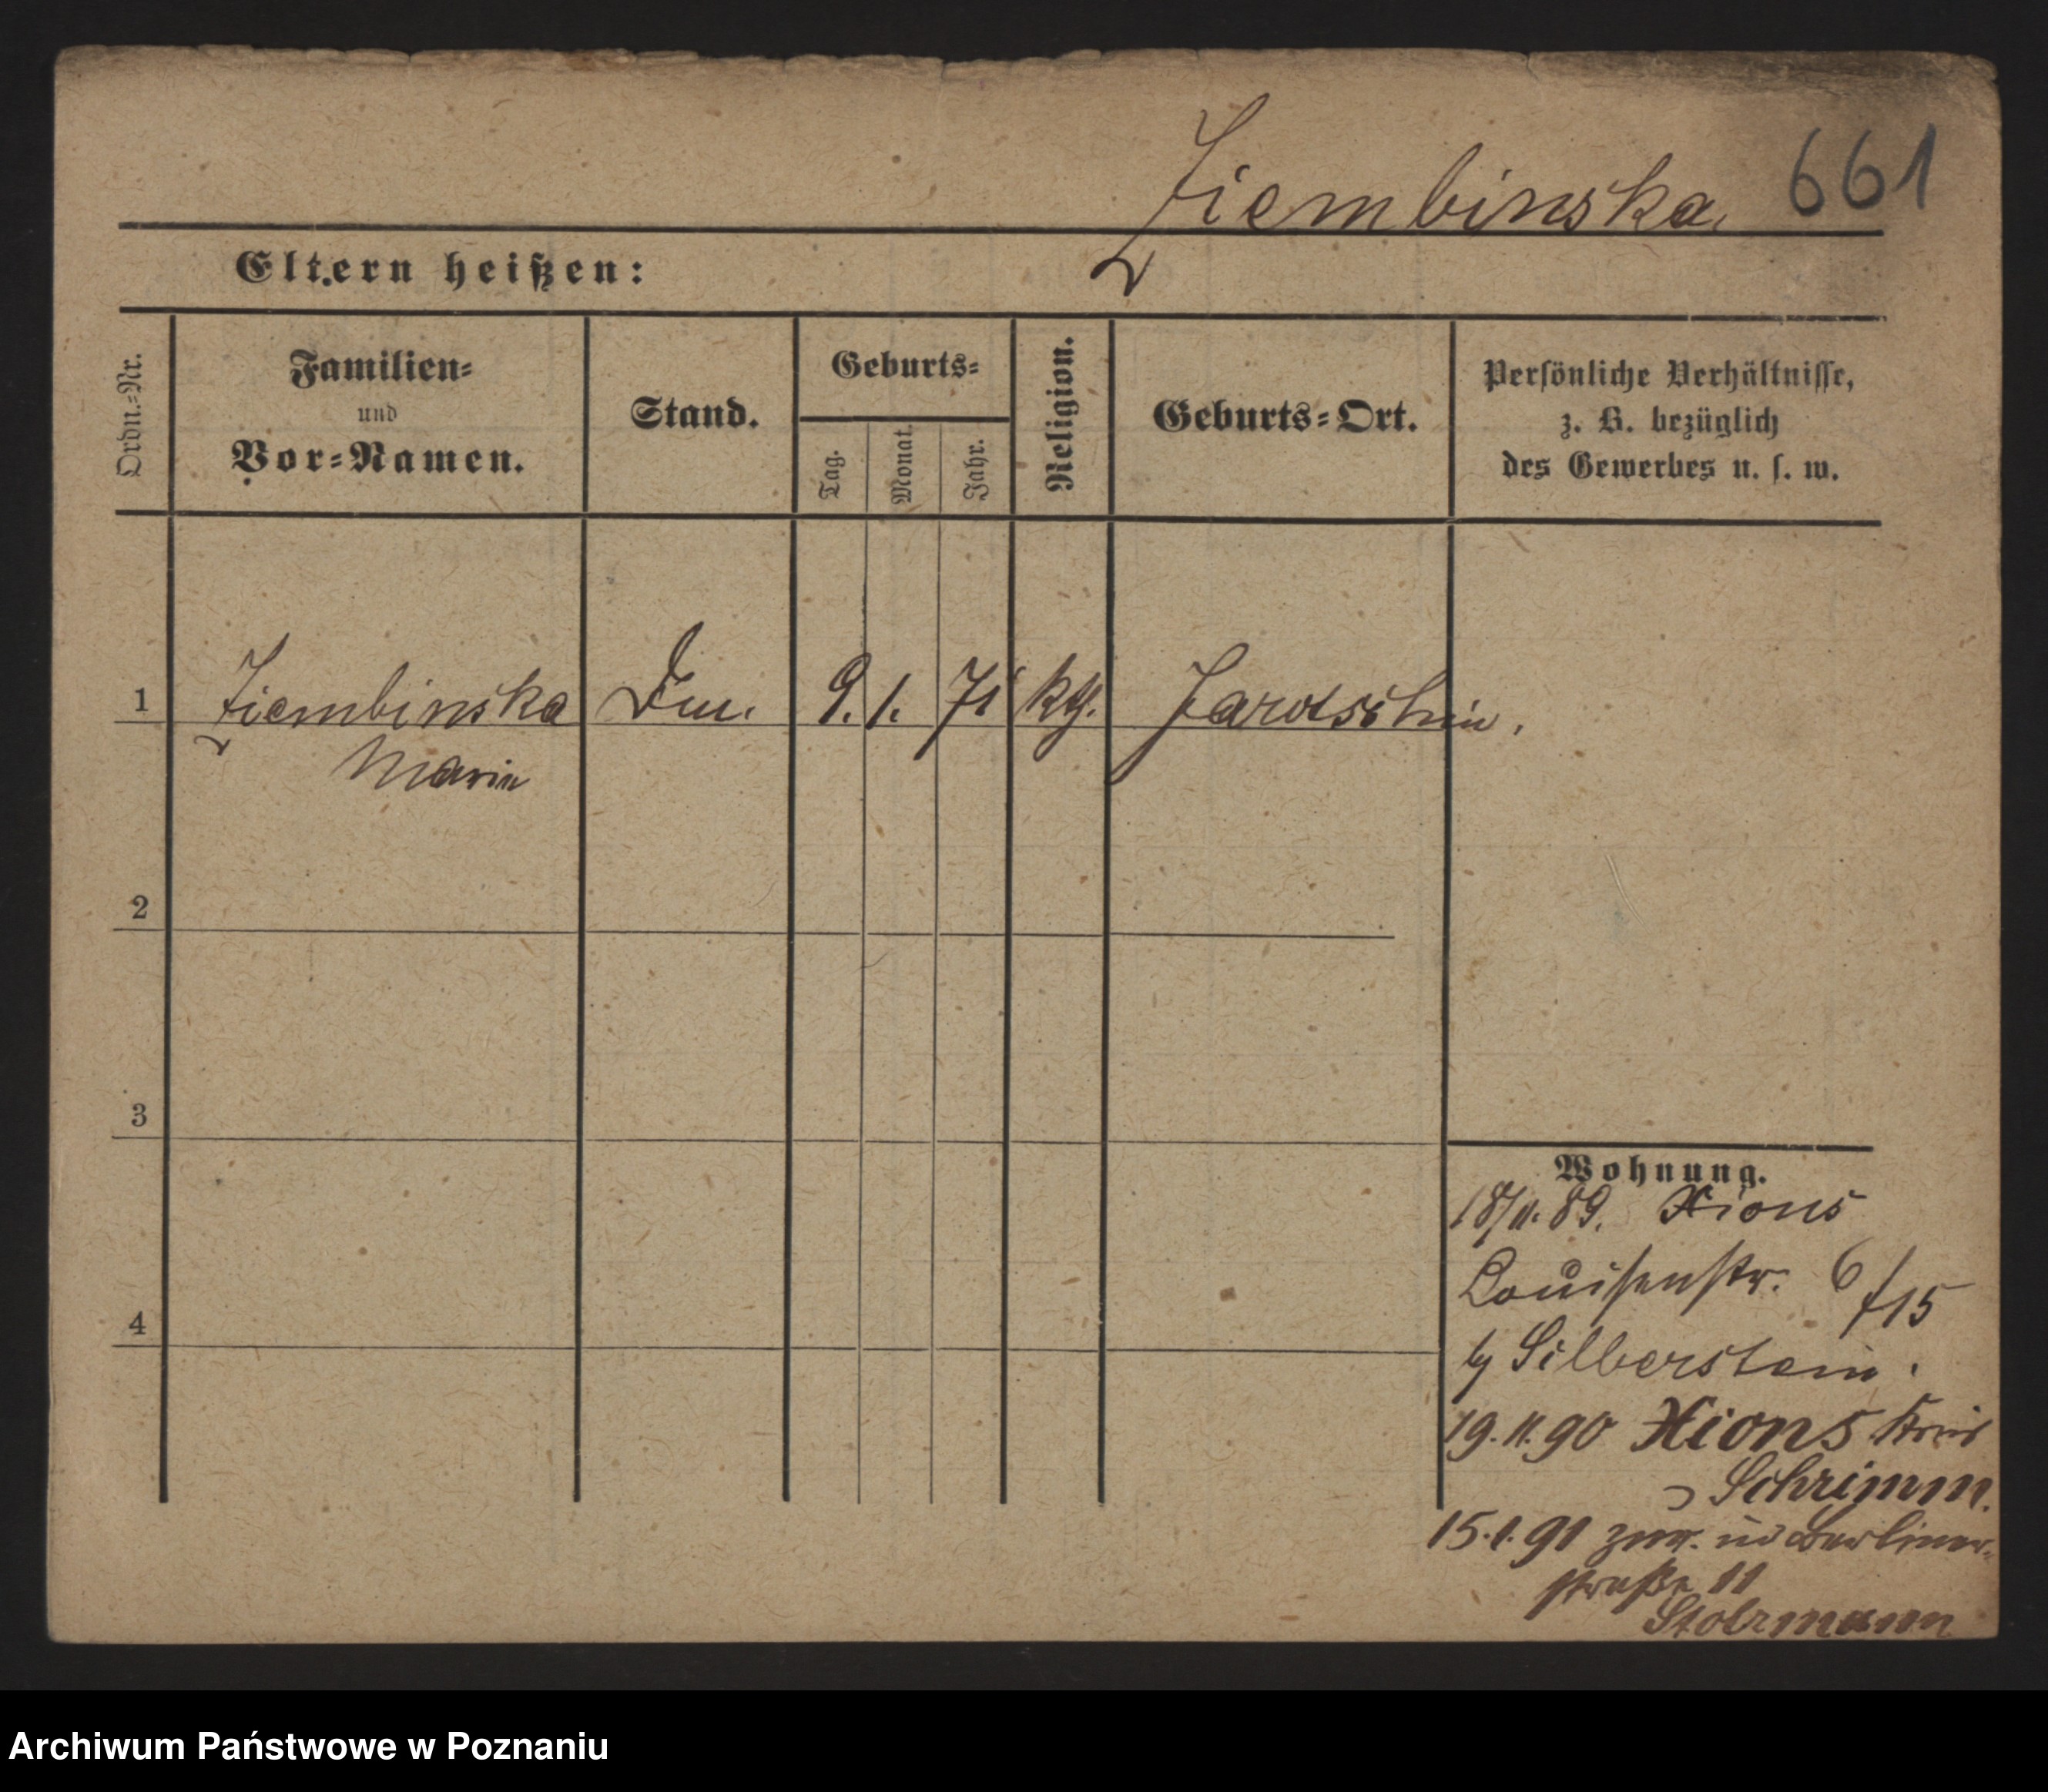 Ziembinska. 661
Eltern heißen:
Ordn.-Nr.
Familien-
und
Vor-Namen.
Stand.
Geburts-
Tag.
Monat.
Jahr.
Religion.
Geburts-Ort.
Persönliche Verhältnisse,
z. B. bezüglich
des Gewerbes u. s. w.
1 Ziembinska 9. 1. 71 kth. Jarotschin.
Marie
2
3
4
Wohnung.
18/11. 89. Xions
Louisenstr. 6/15
by Silberstein.
19.11.90 Xions Kreis
Schrimm.
15.1.91 zur. Berliner-
straße 11